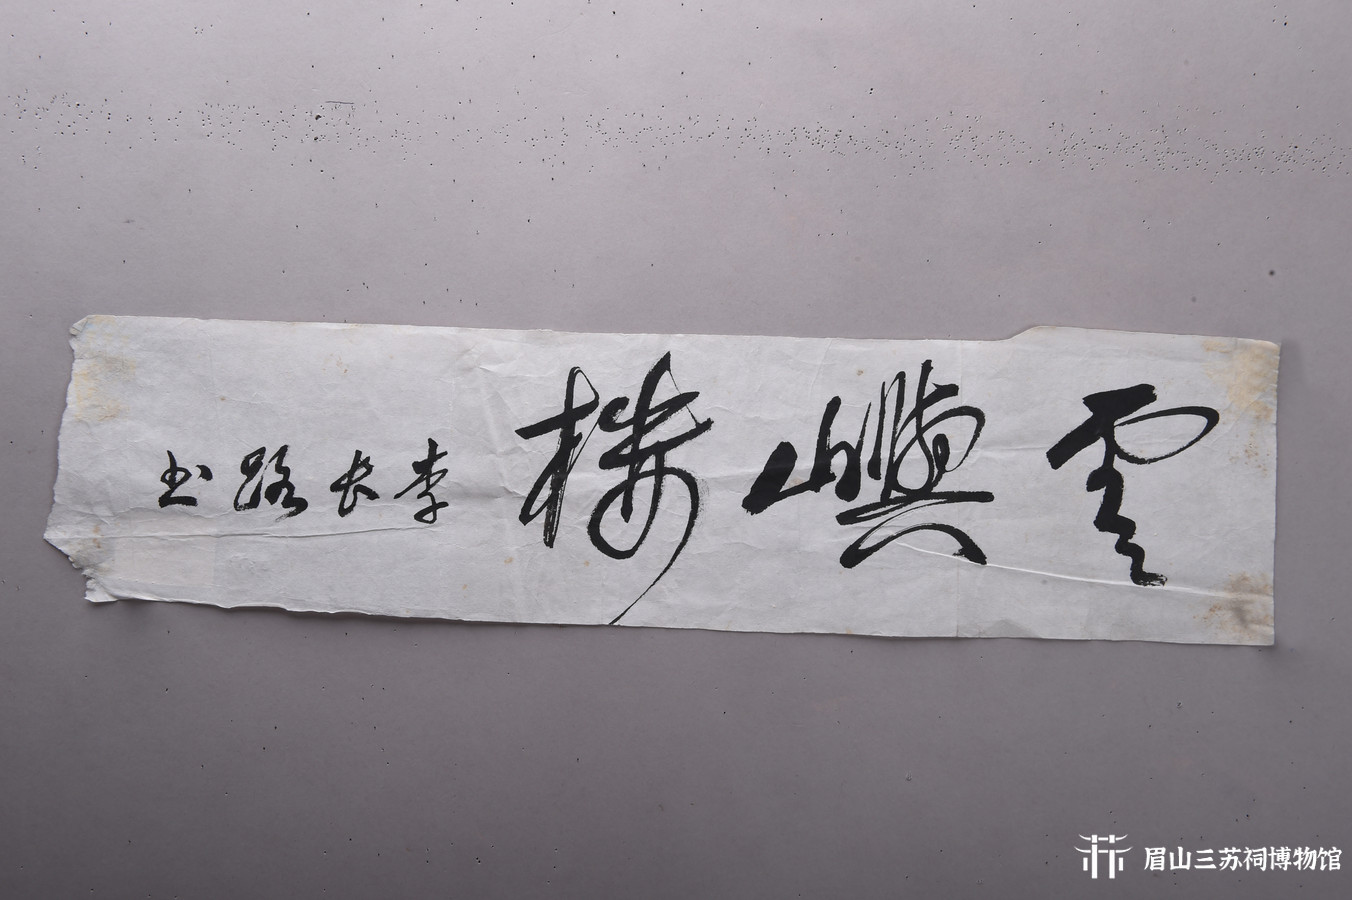 雲嶼樓
李长路书
眉山三苏祠博物馆